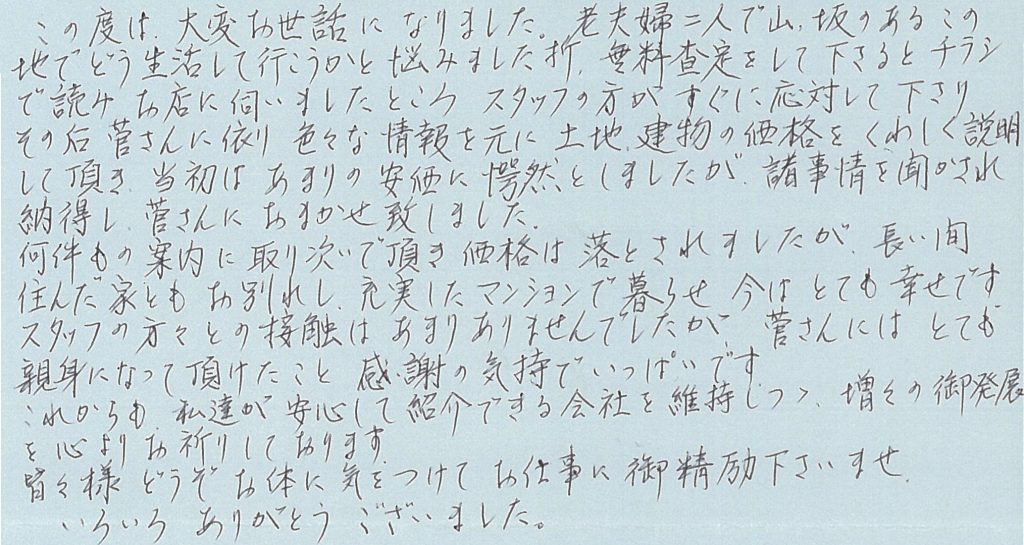 この度は、大変お世話になりました。老夫婦二人で山、坂のあるこの
地でどう生活して行こうかと悩みました折、無料査定をして下さるとチラシ
で読み お店に伺いましたところ スタッフの方が すぐに応対して下さり
その后 菅さんに依り 色々な 情報を元に 土地、建物の価格を くわしく説明
して頂き、当初は あまりの 安価に 愕然としましたが、諸事情を聞かされ
納得し、菅さんに おまかせ 致しました。
何件もの案内に取り次いで頂き 価格は 落とされましたが、長い間
住んだ家とも お別れし、充実したマンションで暮らせ 今は とても 幸せです
スタッフの方々との接触は あまりありませんでしたが、菅さんには とても
親身になって頂けたこと 感謝の気持でいっぱいです
これからも、私達が 安心して紹介できる会社を維持しつゝ、増々の御発展
を心よりお祈りしております
皆々様 どうぞ お体に気をつけて お仕事に 御精励下さいませ。
いろいろ ありがとう ございました。